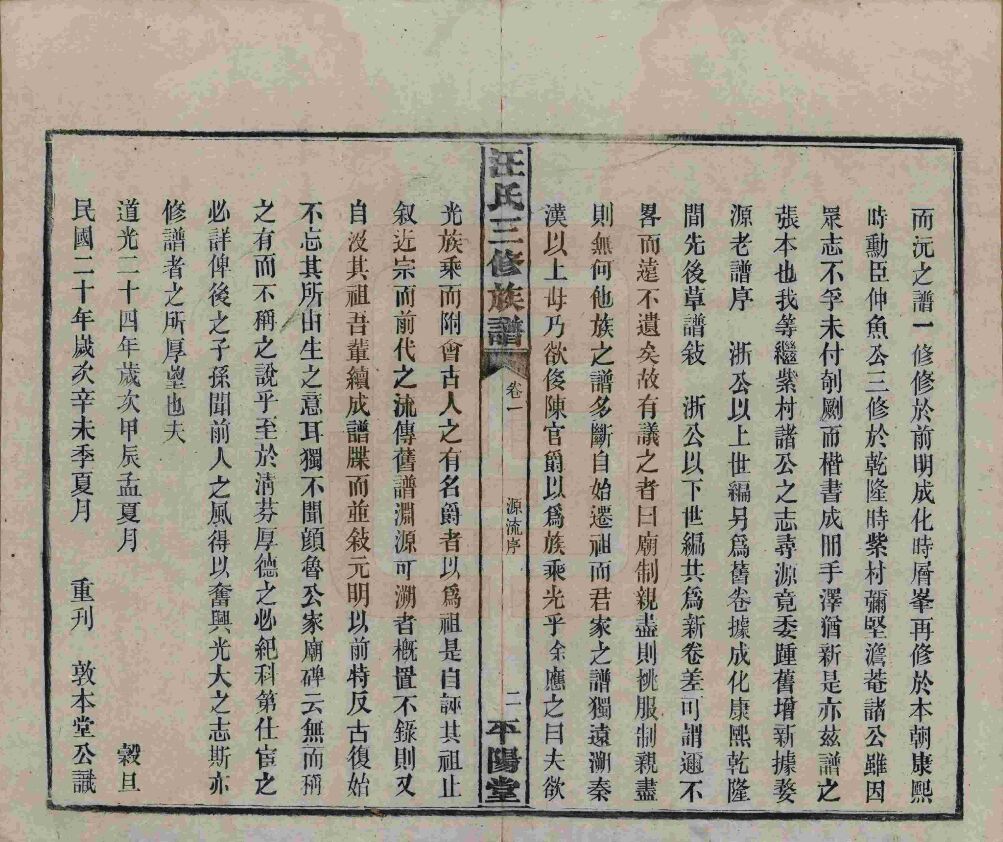 而沅之譜一修修於前明成化時層峯再修於本朝康熙
時勳臣仲魚公三修於乾隆時紫村彌堅澹菴諸公雖因
眾志不孚未付剞劂而楷書成冊手澤猶新是亦茲譜之
張本也我等繼紫村諸公之志尋源竟委踵舊增新據婺
源老譜序　浙公以上世編另爲舊卷據成化康熙乾隆
間先後草譜敍　浙公以下世編共爲新卷差可謂邇不
畧而遠不遺矣故有議之者曰廟制親盡則祧服制親盡
則無何他族之譜多斷自始遷祖而君家之譜獨遠溯秦
漢以上毋乃欲侈陳官爵以爲族乘光乎余應之曰夫欲
汪氏三修族譜
卷一
源流序
二
平陽堂
光族乘而附會古人之有名爵者以爲祖是自誣其祖止
叙近宗而前代之流傳舊譜淵源可溯者概置不錄則又
自沒其祖吾輩續成譜牒而並敍元明以前特反古復始
不忘其所由生之意耳獨不聞顏魯公家廟碑云無而稱
之有而不稱之說乎至於清芬厚德之必紀科第仕宦之
必詳俾後之子孫聞前人之風得以奮興光大之志斯亦
修譜者之所厚望也夫
道光二十四年歲次甲辰孟夏月　穀旦
民國二十年歲次辛未季夏月　重刊　敦本堂公識